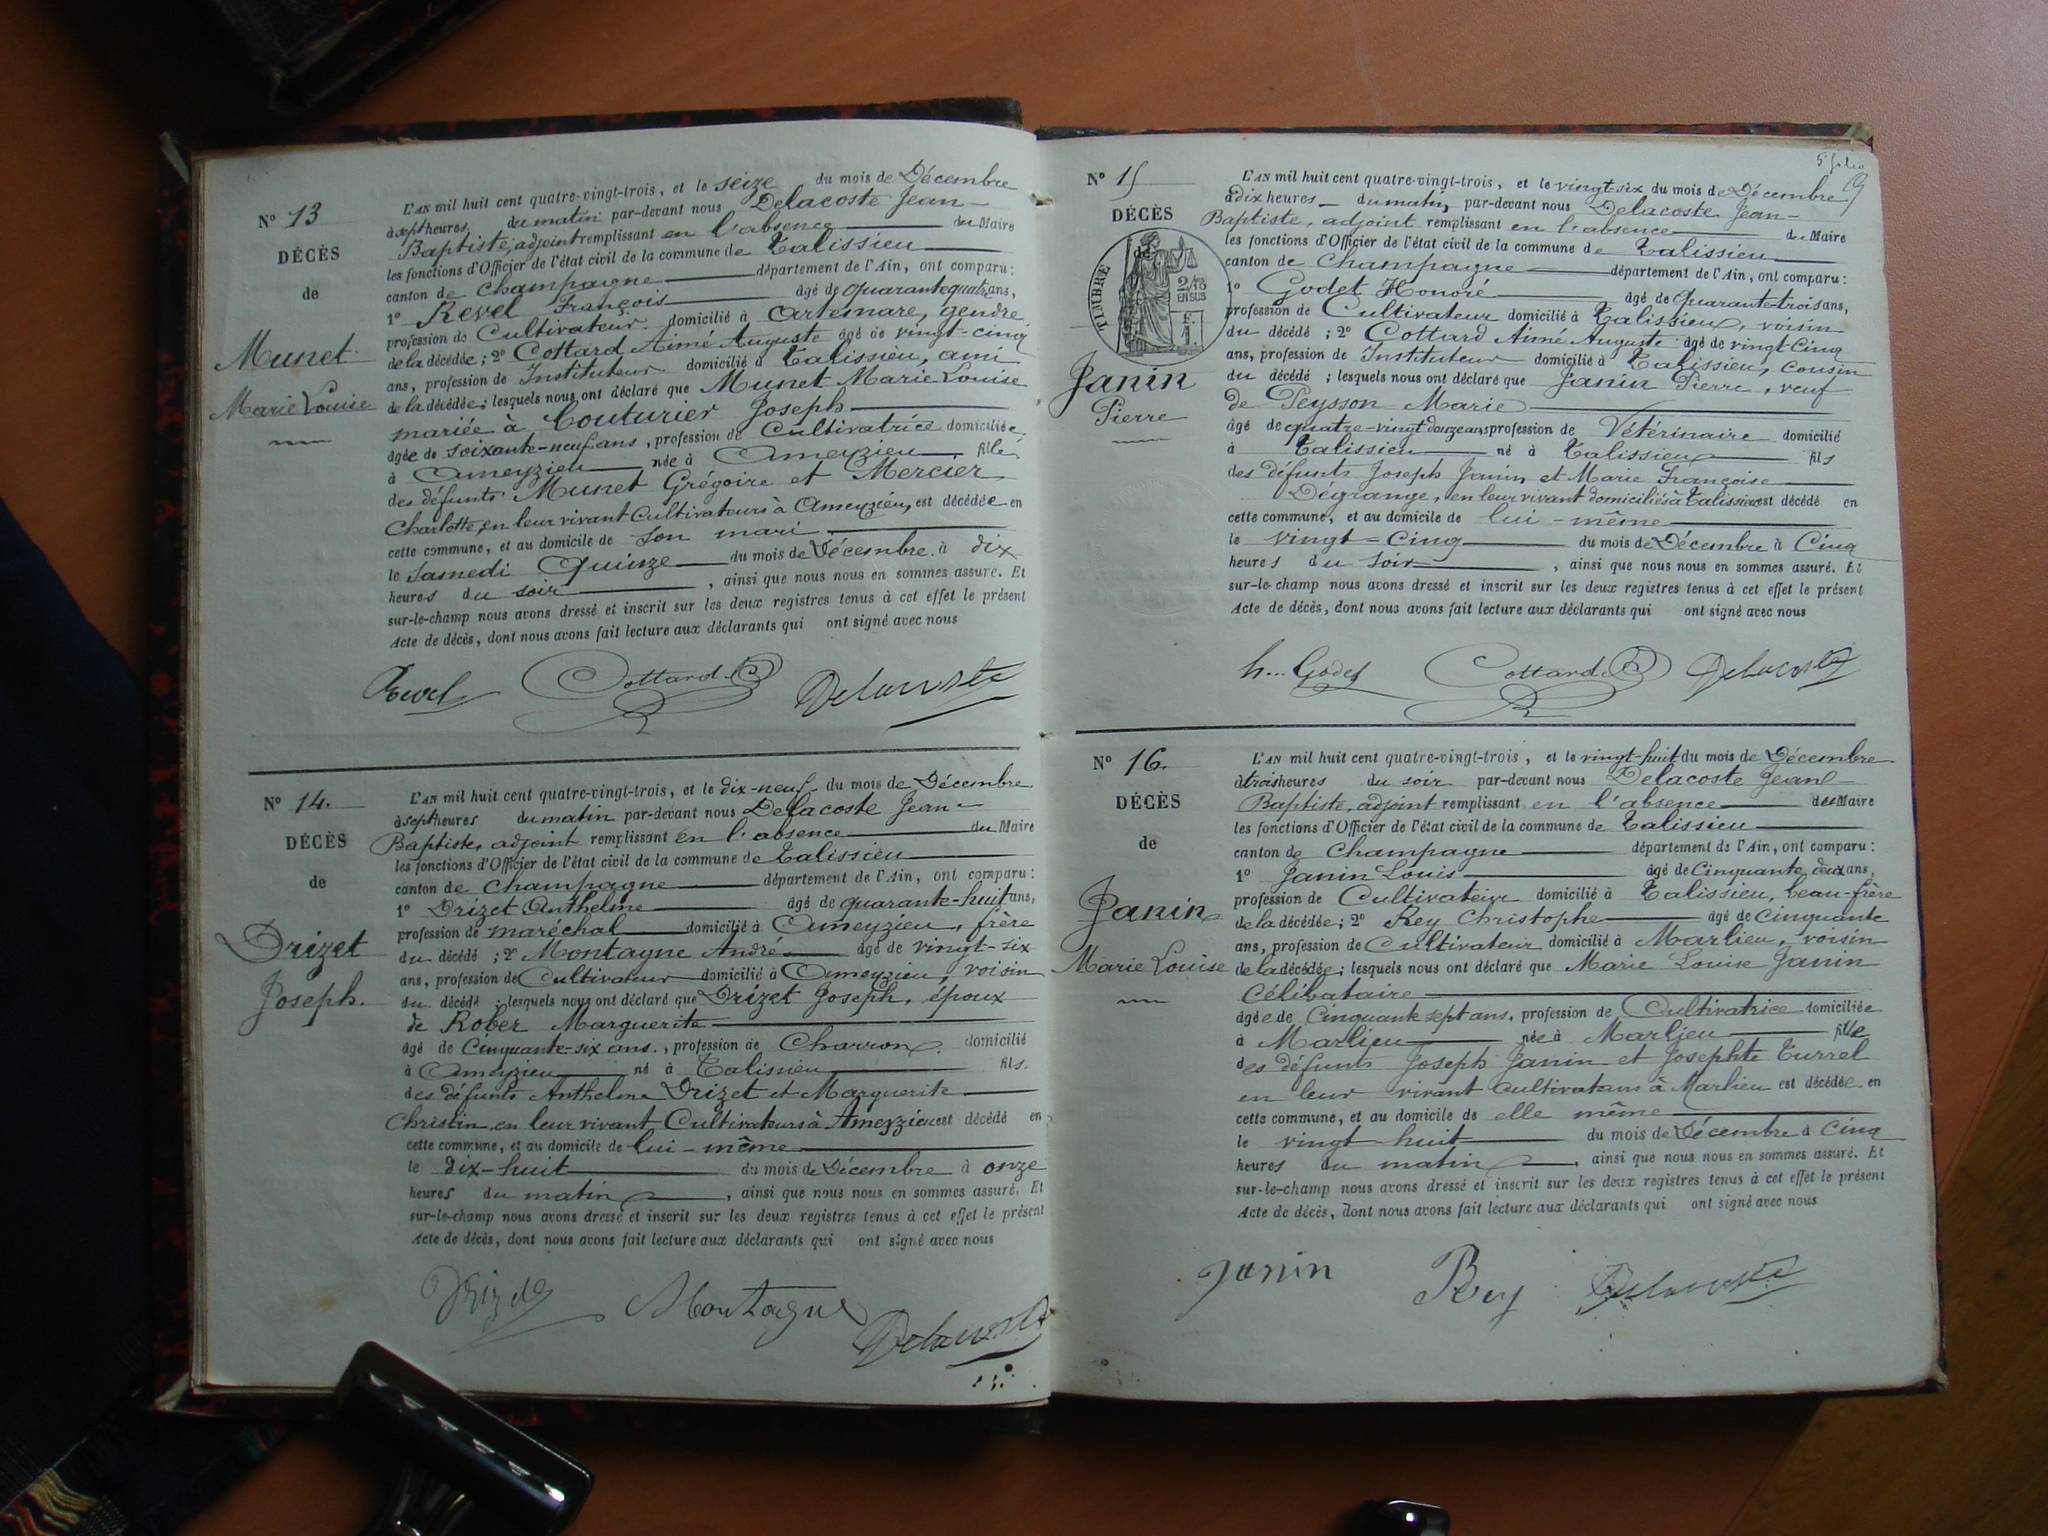 N° 13
DÉCÈS
de
Munet
Marie Louise
L'AN mil huit cent quatre-vingt-trois, et le seize du mois de Décembre
à sept heures du matin par-devant nous Delacoste Jean-
Baptiste, adjoint remplissant en l'absence du Maire
les fonctions d'Officier de l'état civil de la commune de Talissieu
canton de Champagne département de l'Ain, ont comparu:
1° Revel François âgé de quarante quatre ans,
profession de Cultivateur domicilié à Artemare, gendre
de la décédée; 2° Cottard Aimé Auguste âgé de vingt-cinq
ans, profession de Instituteur domicilié à Talissieu, ami
de la décédée; lesquels nous ont déclaré que Munet Marie Louise
mariée à Couturier Joseph
âgée de soixante-neuf ans, profession de Cultivatrice domiciliée
à Ameyzieu née à Ameyzieu fille
des défunts Munet Grégoire et Mercier
Charlotte, en leur vivant Cultivateurs à Ameyzieu, est décédée en
cette commune, et au domicile de son mari
le Samedi Quinze du mois de Décembre à dix
heures du soir, ainsi que nous nous en sommes assuré. Et
sur-le-champ nous avons dressé et inscrit sur les deux registres tenus à cet effet le présent
Acte de décès, dont nous avons fait lecture aux déclarants qui ont signé avec nous
Revel Cottard Delacoste
N° 14.
DÉCÈS
de
Drizet
Joseph.
L'AN mil huit cent quatre-vingt-trois, et le dix-neuf du mois de Décembre
à sept heures du matin par-devant nous Delacoste Jean-
Baptiste, adjoint remplissant en l'absence du Maire
les fonctions d'Officier de l'état civil de la commune de Talissieu
canton de Champagne département de l'Ain, ont comparu:
1° Drizet Anthelme âgé de quarante-huit ans,
profession de maréchal domicilié à Ameyzieu, frère
du décédé; 2° Montagne André âgé de vingt-six
ans, profession de Cultivateur domicilié à Ameyzieu, voisin
du décédé; lesquels nous ont déclaré que Drizet Joseph, époux
de Rober Marguerite
âgé de Cinquante-six ans, profession de Charron domicilié
à Ameyzieu né à Talissieu fils.
des défunts Anthelme Drizet et Marguerite
Christin en leur vivant Cultivateurs à Ameyzieu est décédé en
cette commune, et au domicile de lui-même
le dix-huit du mois de Décembre à onze
heures du matin, ainsi que nous nous en sommes assuré. Et
sur-le-champ nous avons dressé et inscrit sur les deux registres tenus à cet effet le présent
Acte de décès, dont nous avons fait lecture aux déclarants qui ont signé avec nous
Drizet Montagne Delacoste
5e folio
N° 15
DÉCÈS
de
TIMBRE
2/10
EN SUS
F.
1.
Janin
Pierre
L'AN mil huit cent quatre-vingt-trois, et le vingt-six du mois de Décembre
à dix heures du matin par-devant nous Delacoste Jean-
Baptiste, adjoint remplissant en l'absence du Maire
les fonctions d'Officier de l'état civil de la commune de Talissieu
canton de Champagne département de l'Ain, ont comparu:
1° Godet Honoré âgé de Quarante-trois ans,
profession de Cultivateur domicilié à Talissieu, voisin
du décédé; 2° Cottard Aimé Auguste âgé de vingt Cinq
ans, profession de Instituteur domicilié à Talissieu, cousin
du décédé; lesquels nous ont déclaré que Janin Pierre, veuf
de Peysson Marie
âgé de quatre-vingt douze ans profession de Vétérinaire domicilié
à Talissieu né à Talissieu fils
des défunts Joseph Janin et Marie Françoise
Dégrange, en leur vivant domiciliés à Talissieu est décédé en
cette commune, et au domicile de lui-même
le vingt-Cinq du mois de Décembre à Cinq
heures du soir, ainsi que nous nous en sommes assuré. Et
sur-le-champ nous avons dressé et inscrit sur les deux registres tenus à cet effet le présent
Acte de décès, dont nous avons fait lecture aux déclarants qui ont signé avec nous
h. Godet Cottard Delacoste
N° 16.
DÉCÈS
de
Janin
Marie Louise
L'AN mil huit cent quatre-vingt-trois, et le vingt-huit du mois de Décembre
à trois heures du soir par-devant nous Delacoste Jean
Baptiste, adjoint remplissant en l'absence du Maire
les fonctions d'Officier de l'état civil de la commune de Talissieu
canton de Champagne département de l'Ain, ont comparu:
1° Janin Louis âgé de Cinquante deux ans,
profession de Cultivateur domicilié à Talissieu, beau-frère
de la décédée; 2° Rey Christophe âgé de Cinquante
ans, profession de Cultivateur domicilié à Marlieu, voisin
de la décédée; lesquels nous ont déclaré que Marie Louise Janin
Célibataire
âgée de Cinquante sept ans, profession de Cultivatrice domiciliée
à Marlieu née à Marlieu fille
des défunts Joseph Janin et Josephte Turrel
en leur vivant cultivateurs à Marlieu est décédée en
cette commune, et au domicile de elle même
le vingt-huit du mois de Décembre à Cinq
heures du matin, ainsi que nous nous en sommes assuré. Et
sur-le-champ nous avons dressé et inscrit sur les deux registres tenus à cet effet le présent
Acte de décès, dont nous avons fait lecture aux déclarants qui ont signé avec nous
Janin Rey Delacoste